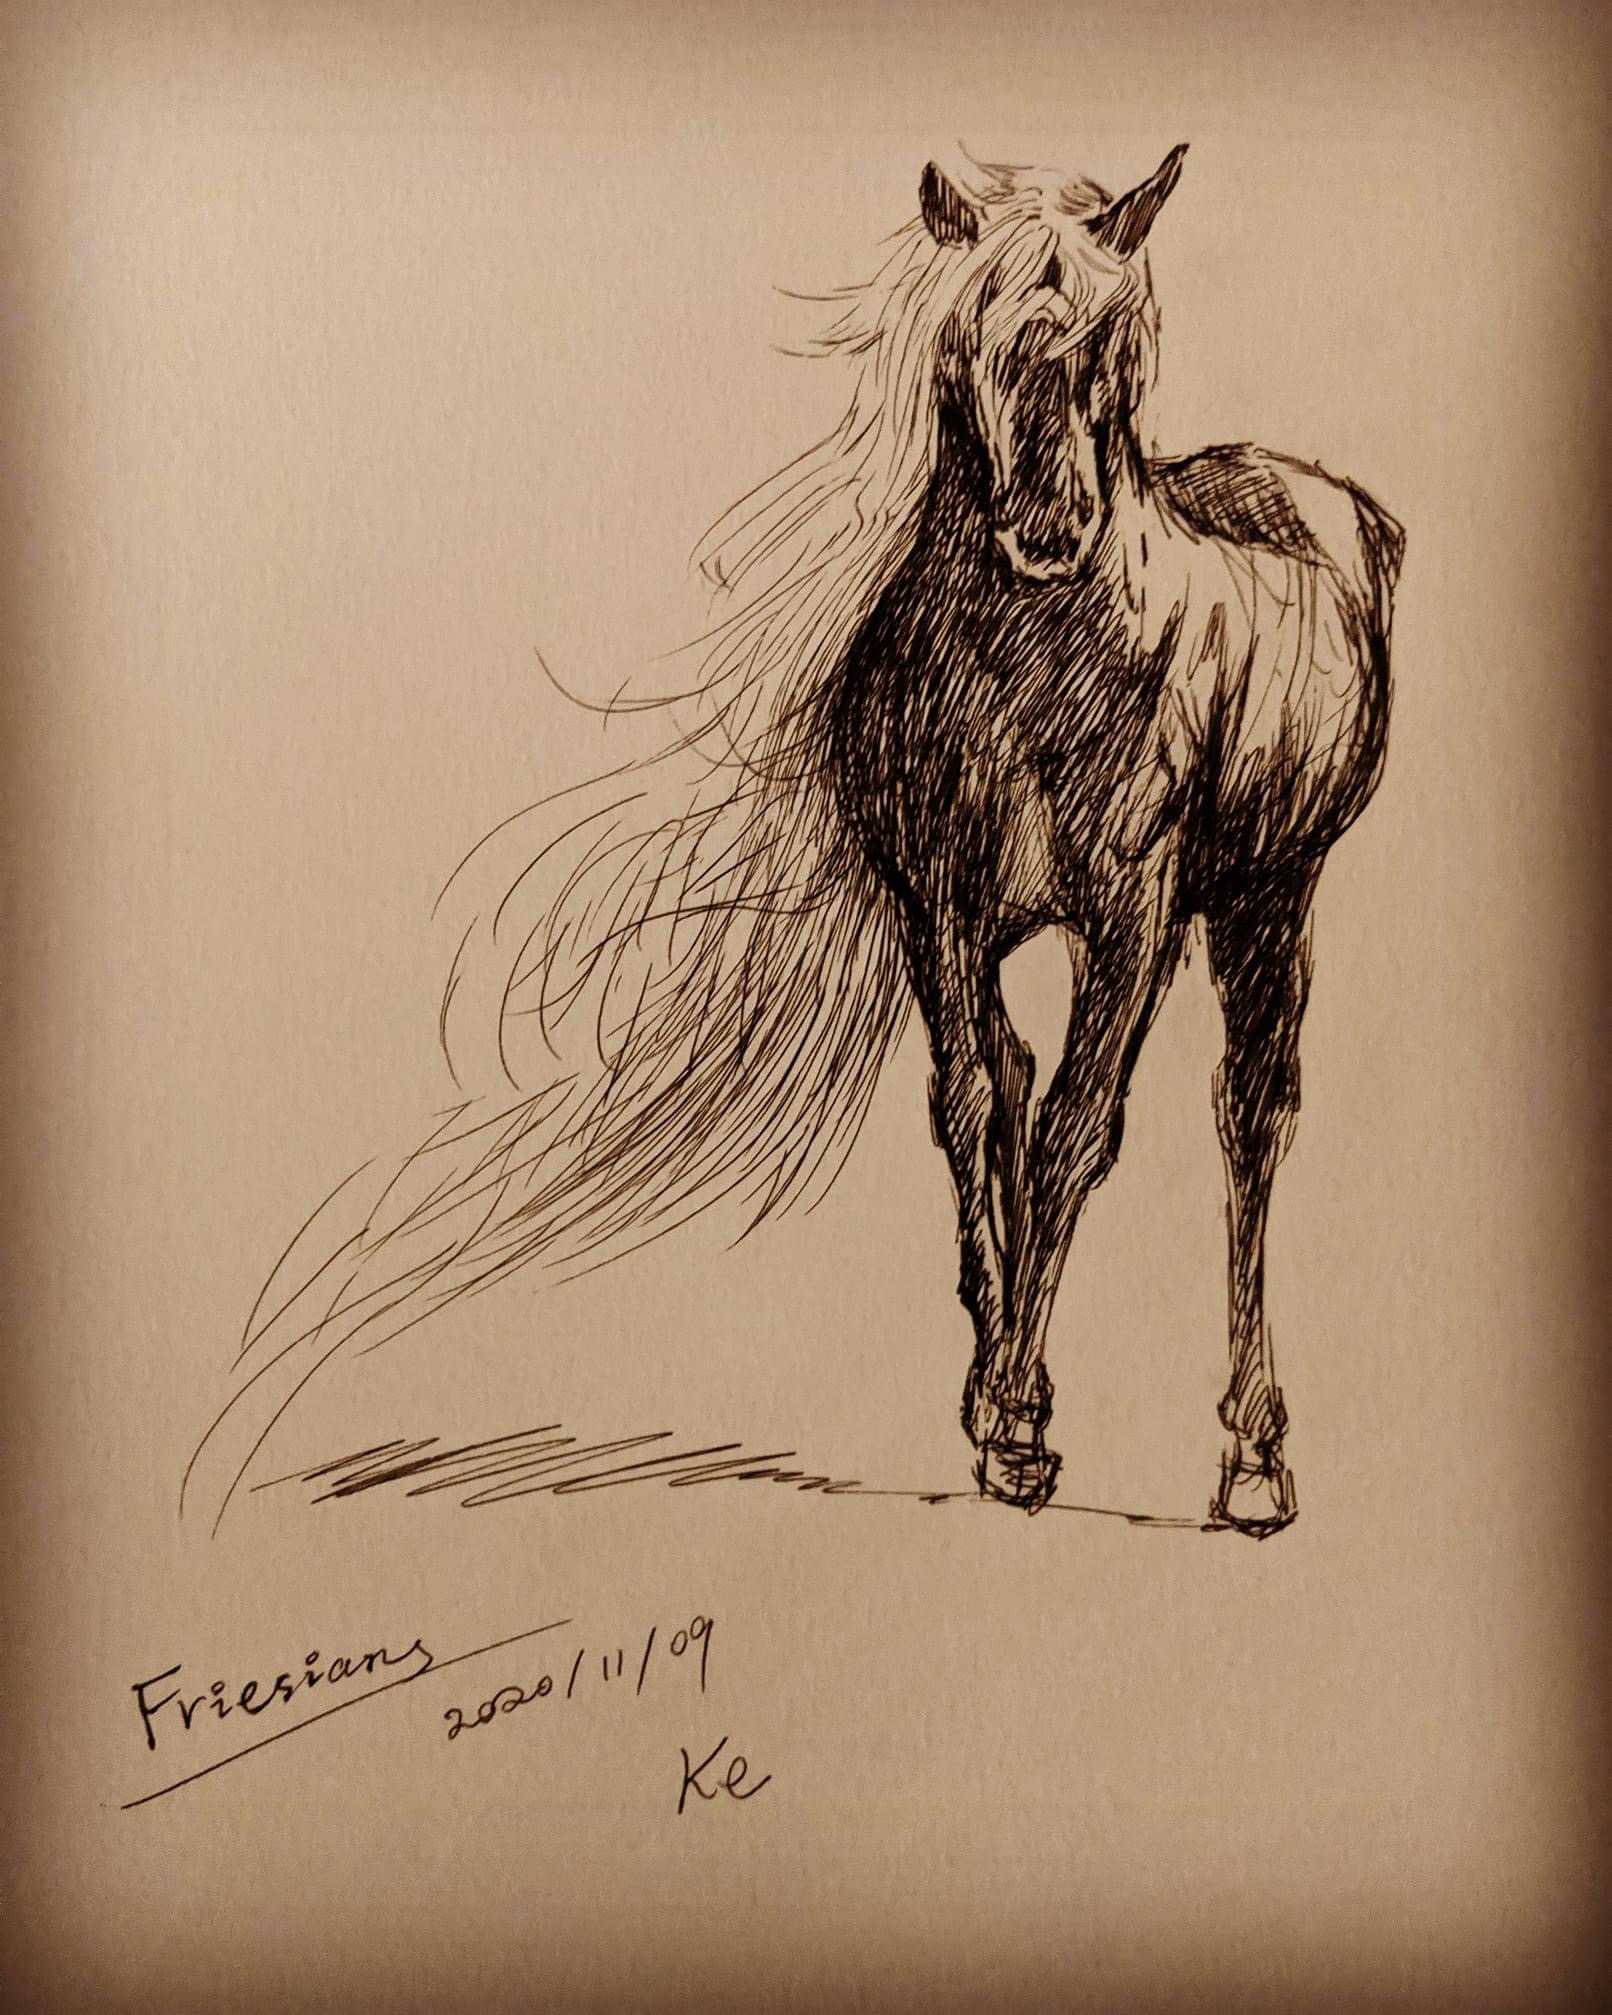 Friesians
2020/11/09
Ke